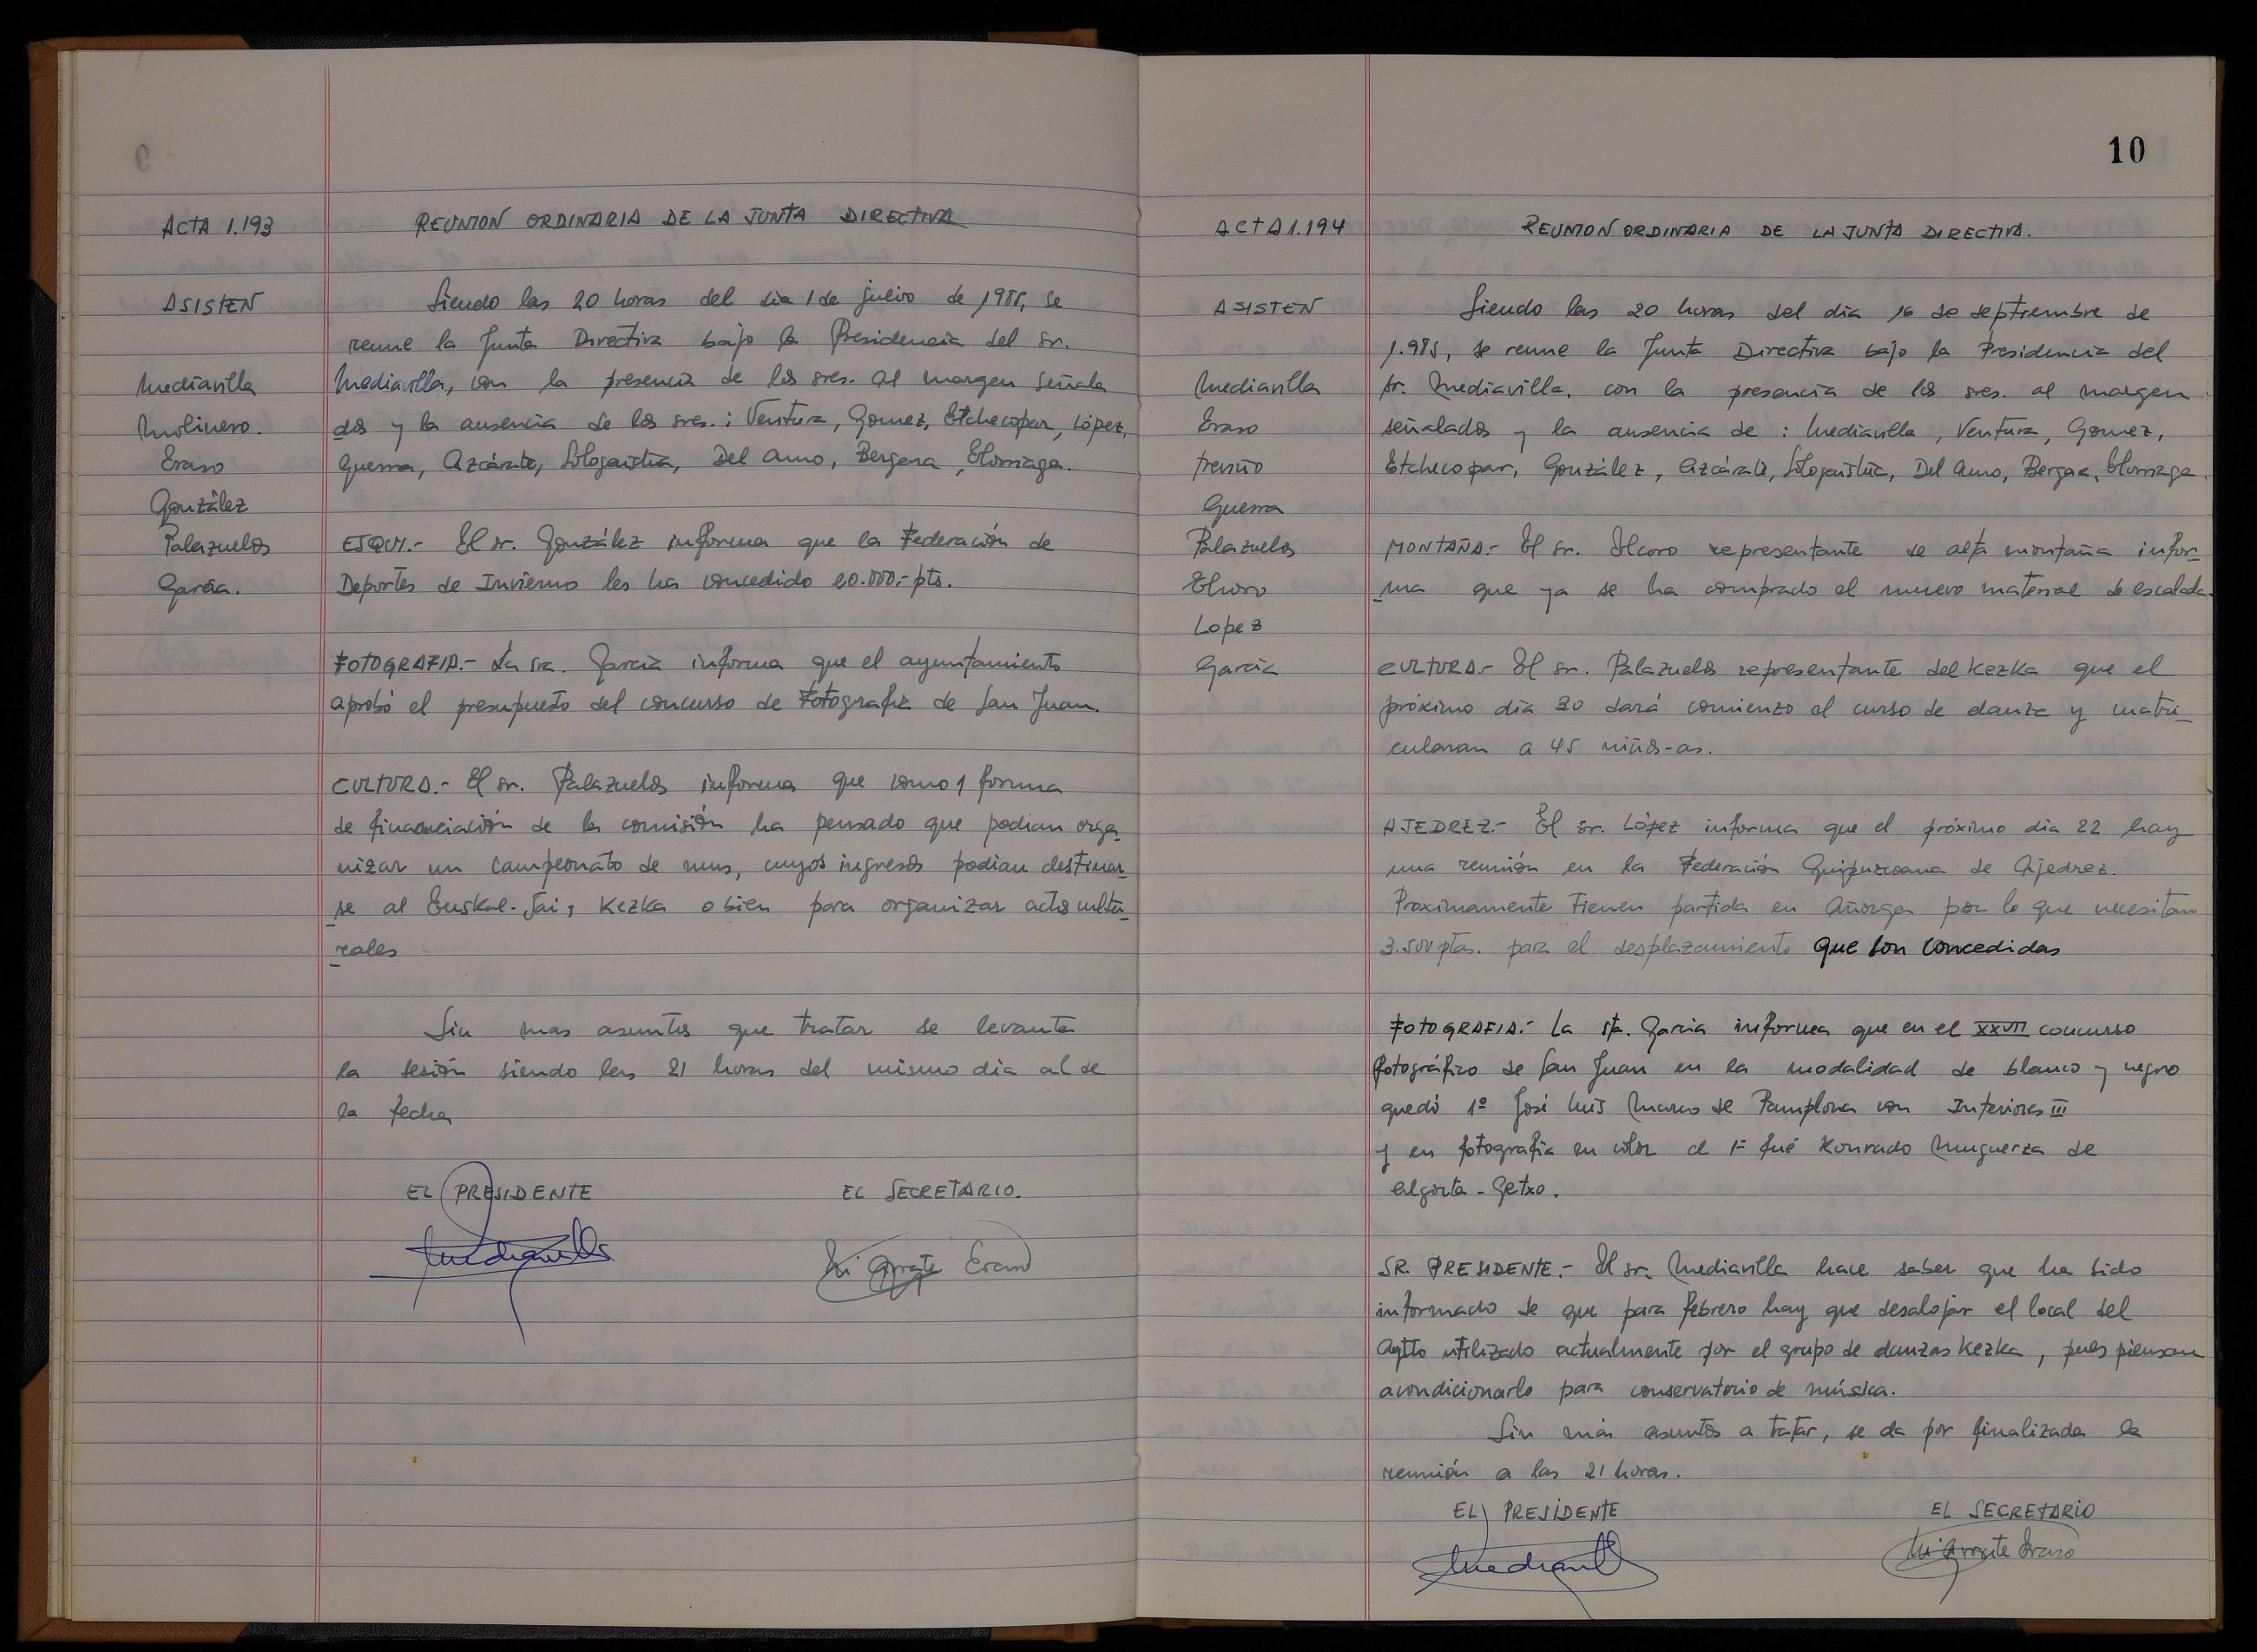 ACTA 1.193
REUNION ORDINARIA DE LA JUNTA DIRECTIVA
ASISTEN
Mediavilla
Molinero.
Eraso
González
Palazuelos
García.
Siendo las 20 horas del dia 1 de julio de 1985, se
reune la Junta Directiva bajo la Presidencia del sr.
Mediavilla, con la presencia de los sres. al margen señala
dos y la ausencia de los sres.: Ventura, Gomez, Etchecopar, López,
Guerra, Azcárate, Ologaistia, Del Amo, Bergara, Elorriaga.
ESQUI.- El sr. González informa que la Federación de
Deportes de Invierno les ha concedido 20.000.- pts.
FOTOGRAFIA.- La sra. García informa que el ayuntamiento
aprobó el presupuesto del concurso de Fotografía de San Juan.
CULTURA.- El sr. Palazuelos informa que como 1 forma
de financiación de la comisión ha pensado que podian orga
nizar un campeonato de mus, cuyos ingresos podian destinar
se al Euskal-Jai, Kezka o bien para organizar actos cultu-
rales
Sin mas asuntos que tratar se levanta
la sesión siendo las 21 horas del mismo dia al de
la fecha
EL PRESIDENTE
EL SECRETARIO.
Mediavilla
Mi Arrate Eraso
10
ACTA 1.194
REUNION ORDINARIA DE LA JUNTA DIRECTIVA.
ASISTEN
Mediavilla
Eraso
Treviño
Guerra
Palazuelos
Elcoro
Lopez
García
Siendo las 20 horas del dia 16 de septiembre de
1.985, se reune la Junta Directiva bajo la Presidencia del
sr. Mediavilla, con la presencia de los sres. al margen
señalados y la ausencia de: Mediavilla, Ventura, Gomez,
Etchecopar, González, Azcárate, Ologaistia, Del Amo, Bergara, Elorriaga.
MONTAÑA.- El sr. Elcoro representante de alta montaña infor-
ma que ya se ha comprado el nuevo material de escalada.
CULTURA.- El sr. Palazuelos representante del Kezka que el
próximo dia 30 dará comienzo el curso de danza y matri-
cularan a 45 niños-as.
AJEDREZ.- El sr. López informa que el próximo dia 22 hay
una reunión en la Federación Guipuzcoana de Ajedrez.
Proximamente tienen partida en Añorga por lo que necesitan
3.500 ptas. para el desplazamiento que son concedidas
FOTOGRAFIA.- La sta. Garcia informa que en el XXVII concurso
fotográfico de San Juan en la modalidad de blanco y negro
quedó 1º José Luis Marco de Pamplona con Interiores III
y en fotografía en color el 1º fué Konrado Muguerza de
Algorta - Getxo.
SR. PRESIDENTE.- El sr. Mediavilla hace saber que ha sido
informado de que para febrero hay que desalojar el local del
Aytto utilizado actualmente por el grupo de danzas Kezka, pues piensan
acondicionarlo para conservatorio de música.
Sin más asuntos a tratar, se da por finalizada la
reunión a las 21 horas.
EL PRESIDENTE
EL SECRETARIO
Mediavilla
Mi Arrate Eraso